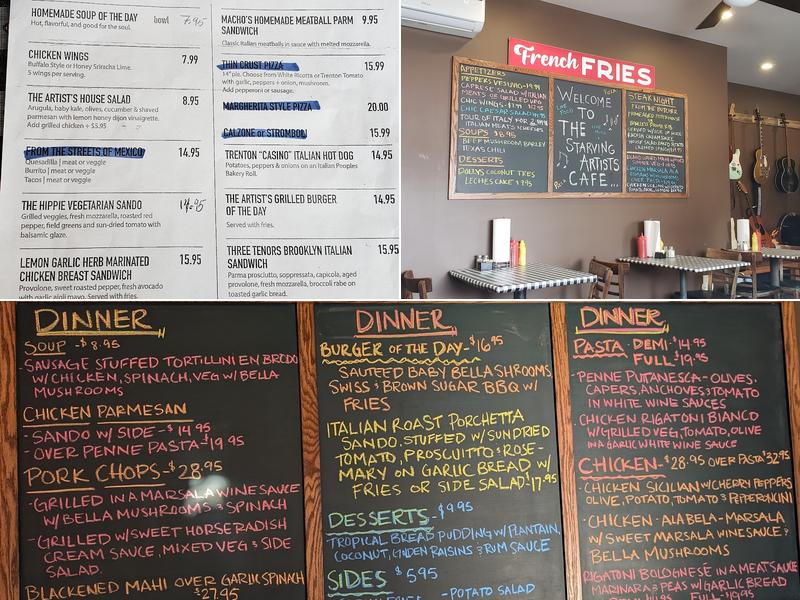 HOMEMADE SOUP OF THE DAY bowl 7.95
Hot, flavorful, and good for the soul.
CHICKEN WINGS 7.99
Buffalo Style or Honey Sriracha Lime.
5 wings per serving.
THE ARTIST'S HOUSE SALAD 8.95
Arugula, baby kale, olives, cucumber & shaved
parmesan with lemon honey dijon vinaigrette.
Add grilled chicken + $5.95
FROM THE STREETS OF MEXICO 14.95
Quesadilla | meat or veggie
Burrito | meat or veggie
Tacos | meat or veggie
THE HIPPIE VEGETARIAN SANDO 14.95
Grilled veggies, fresh mozzarella, roasted red
pepper, field greens and sun-dried tomato with
balsamic glaze.
LEMON GARLIC HERB MARINATED 15.95
CHICKEN BREAST SANDWICH
Provolone, sweet roasted pepper, fresh avocado
with garlic aioli mayo. Served with fries.
MACHO'S HOMEMADE MEATBALL PARM 9.95
SANDWICH
Classic Italian meatballs in sauce with melted mozzarella.
THIN CRUST PIZZA 15.99
14" pie. Choose from White Ricotta or Trenton Tomato
with garlic, peppers + onion, mushroom.
Add pepperoni or sausage.
MARGHERITA STYLE PIZZA 20.00
CALZONE or STROMBOLI 15.99
TRENTON "CASINO" ITALIAN HOT DOG 14.95
Potatoes, peppers & onions on an Italian Peoples
Bakery Roll.
THE ARTIST'S GRILLED BURGER 14.95
OF THE DAY
Served with fries.
THREE TENORS BROOKLYN ITALIAN 15.95
SANDWICH
Parma prosciutto, soppressata, capicola, aged
provolone, fresh mozzarella, broccoli rabe on
toasted garlic bread.
French FRIES
APPETIZERS
CAPRESE SALAD W/ITALIAN
MEATS OR GRILLED VEG
CHIC CAESAR SALAD
TOUR OF ITALY FOR 2
ITALIAN MEATS/CHEESES
SOUPS $8.95
BEEF MUSHROOM BARLEY
TEXAS CHILI
DESSERTS
DOLLY'S COCONUT TRES
LECHES CAKE $9.95
WELCOME
TO
THE
STARVING
ARTISTS
CAFE...
STEAK NIGHT
DINNER
SOUP -$8.95
-SAUSAGE STUFFED TORTILLINI EN BRODO
W/CHICKEN, SPINACH, VEG W/BELLA
MUSHROOMS
CHICKEN PARMESAN
-SANDO W/SIDE-$14.95
-OVER PENNE PASTA-$19.95
PORK CHOPS-$28.95
-GRILLED IN A MARSALA WINE SAUCE
W/BELLA MUSHROOMS & SPINACH
-GRILLED W/SWEET HORSERADISH
CREAM SAUCE, MIXED VEG & SIDE
SALAD.
BLACKENED MAHI OVER GARLIC SPINACH
$27.95
DINNER
BURGER OF THE DAY-$16.95
SAUTEED BABY BELLA SHROOMS
SWISS & BROWN SUGAR BBQ W/
FRIES
ITALIAN ROAST PORCHETTA
SANDO. STUFFED W/SUNDRIED
TOMATO, PROSCIUTTO & ROSE-
MARY ON GARLIC BREAD W/
FRIES OR SIDE SALAD-$17.95
DESSERTS-$9.95
TROPICAL BREAD PUDDING W/PLANTAIN,
COCONUT, GOLDEN RAISINS & RUM SAUCE
SIDES $5.95
-POTATO SALAD
DINNER
PASTA- DEMI-$14.95
FULL-$19.95
-PENNE PUTTANESCA-OLIVES,
CAPERS, ANCHOVES & TOMATO
IN WHITE WINE SAUCES
-CHICKEN RIGATONI BIANCO
W/GRILLED VEG, TOMATO, OLIVE
IN A GARLIC WHITE WINE SAUCE
CHICKEN-$28.95 OVER PASTA $32.95
-CHICKEN SICILIAN W/CHERRY PEPPERS
OLIVE, POTATO, TOMATO & PEPERONCINI
-CHICKEN-ALA BELA-MARSALA
W/SWEET MARSALA WINE SAUCE &
BELLA MUSHROOMS
RIGATONI BOLOGNESE IN A MEAT SAUCE
MARINARA & PEAS W/GARLIC BREAD